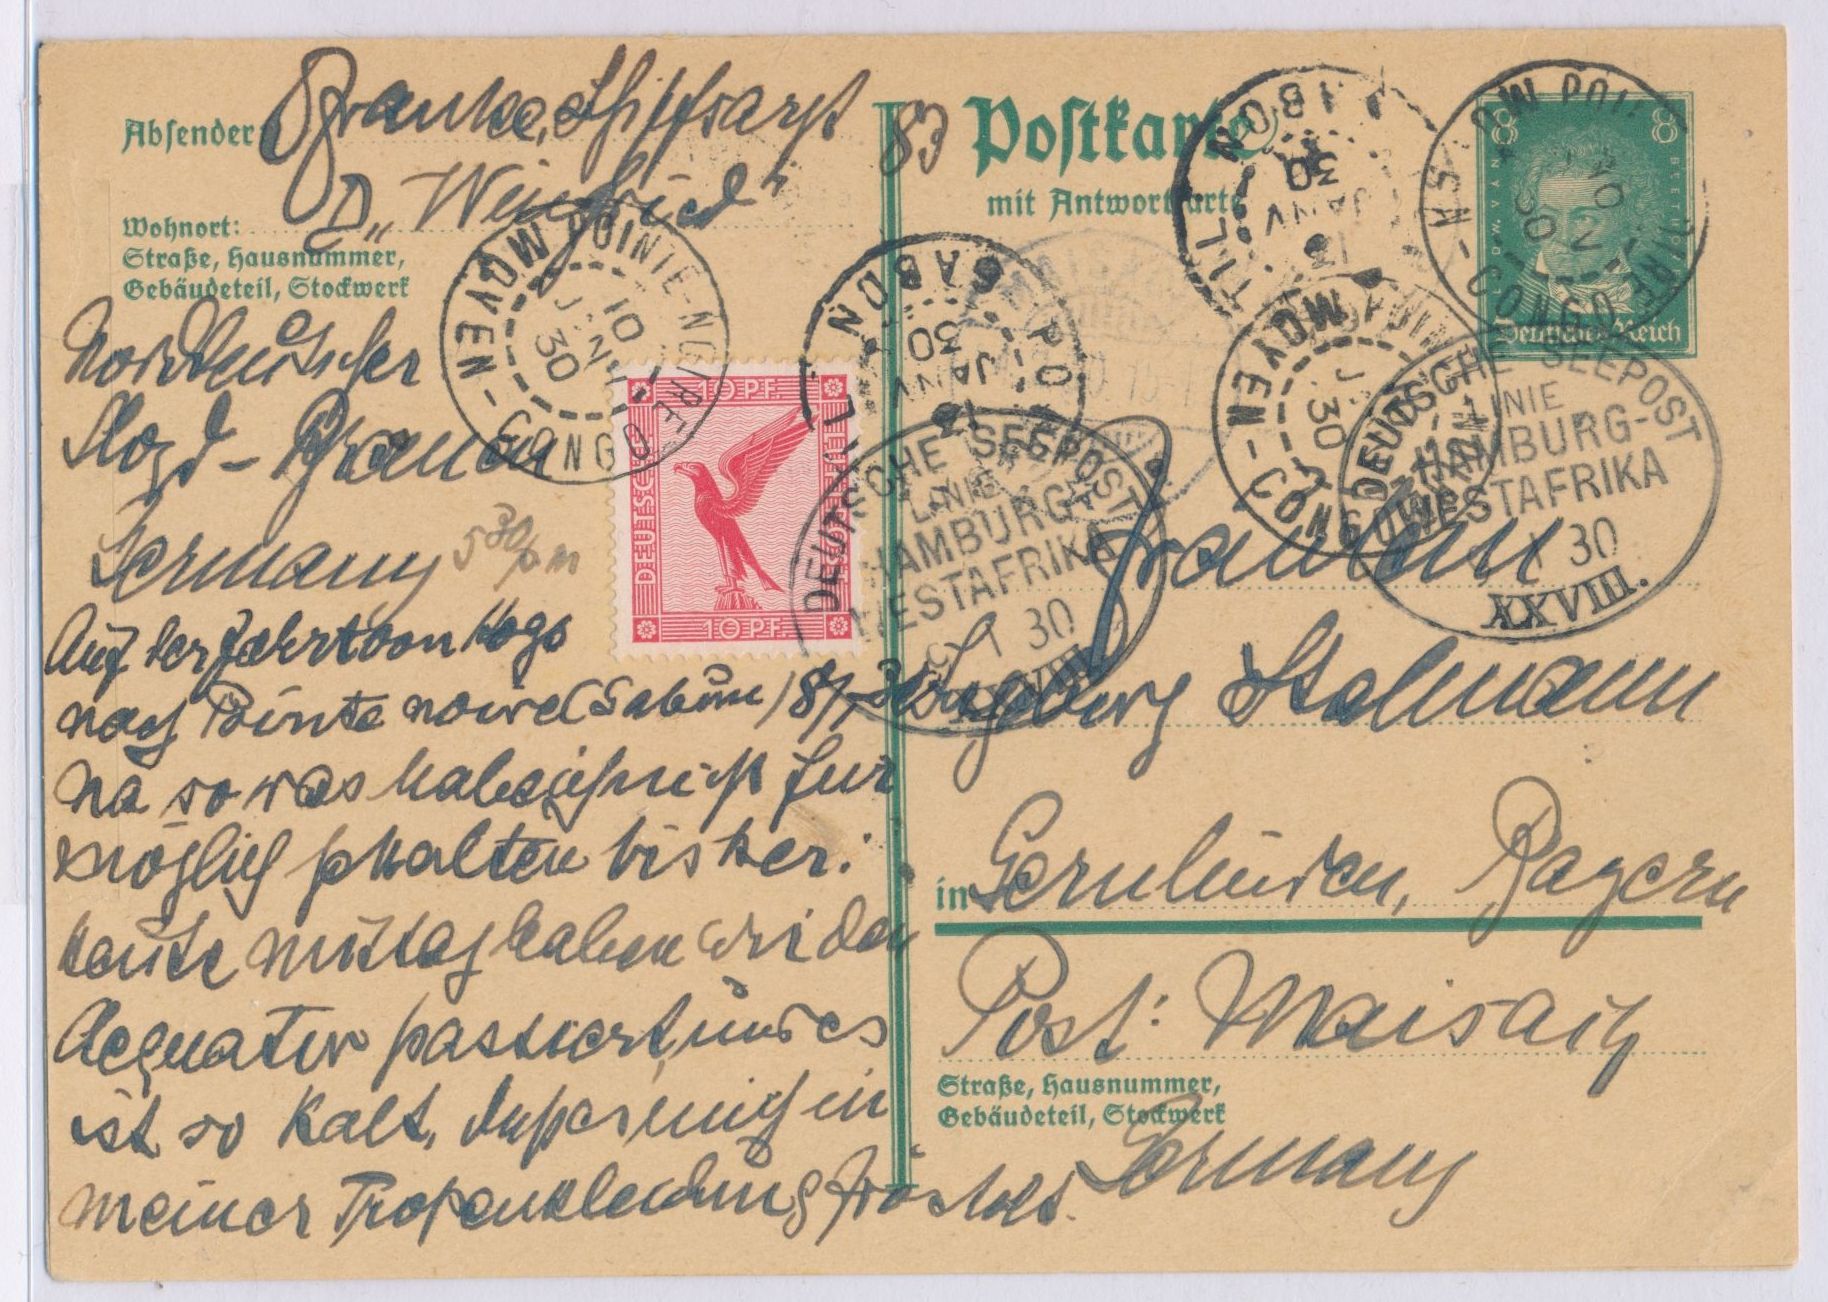 Absender:
Franke, Schiffsarzt
D „Winfried"
Wohnort:
Straße, Hausnummer,
Gebäudeteil, Stockwerk
Norddeutscher
Lloyd - Bremen
Germany
5 30/pm
Auf der Fahrt von Kogo
nach Pointe noire (Gabun) 8/
na so was habe ich nicht für
möglich gehalten bisher.
heute mittag haben wir den
Aequator passiert, und es
ist so kalt, daß er mich in
meiner Tropenkleidung fröstelt.
83
Postkarte
mit Antwortkarte
8 8
BEETHOVEN
Deutsches Reich
10 PF.
DEUTSCHES REICH
10 PF.
POINTE-NOIRE
MOYEN-CONGO
10
JANV
30
GABON
13
JANV
30
DEUTSCHE SEEPOST
LINIE
HAMBURG-
WESTAFRIKA
1 30
XXVIII.
DEUTSCHE SEEPOST
LINIE
HAMBURG-
WESTAFRIKA
9 1 30
XXVIII.
POINTE-NOIRE
MOYEN-CONGO
30
POINTE-NOIRE
MOYEN-CONGO
10
30
GABON
13
JANV
30
Fräulein
Ingeborg Stelmann
in Gernlinden, Bayern
Post: Maisach
Straße, Hausnummer,
Gebäudeteil, Stockwerk
Germany